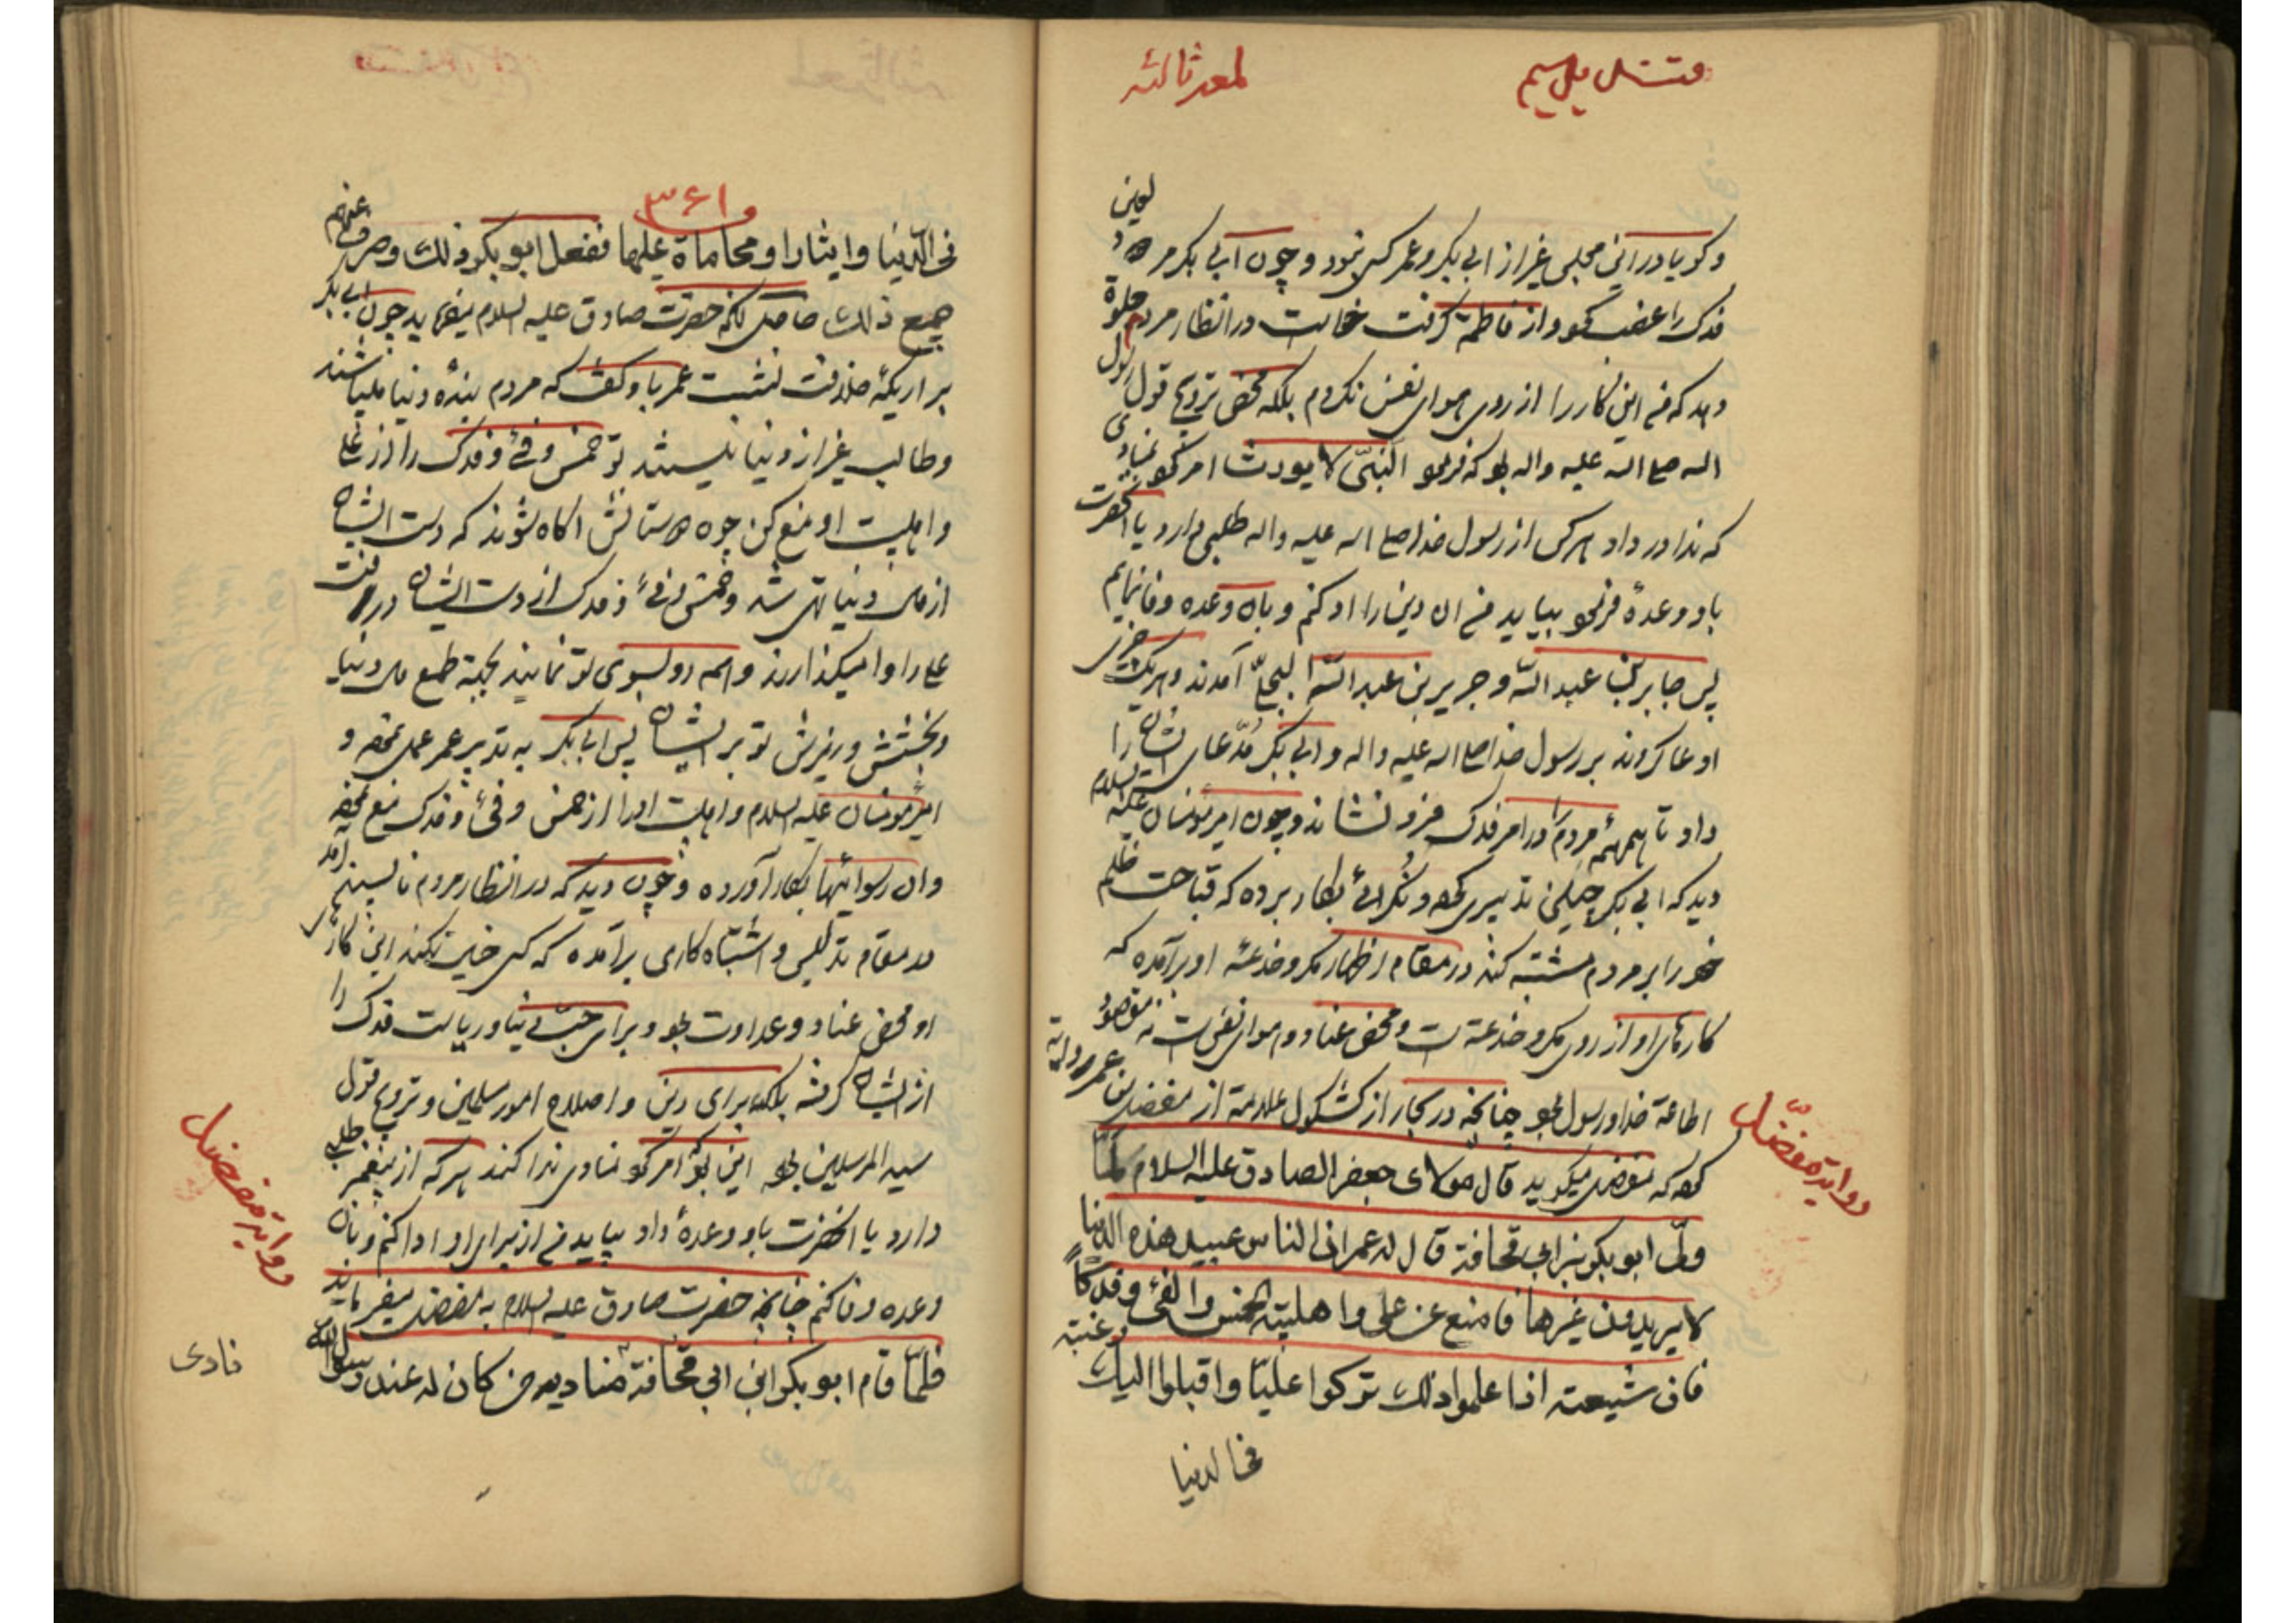 لمعه ثالثه
و گویا در این مجلس غیر از ابی بکر و عمر کسی نبود و چون ابی بکر مردود لعین
فدک را غصب نمود و از فاطمه گرفت خواست در انظار مردم جلوه
دهد که من این کار را از روی هوای نفس نکردم بلکه محض ترویج قول رسول
الله صلی الله علیه واله بود که فرمود النبی لا یورث امر نمود بمنادی
که ندا در داد هر کس از رسول خدا صلی الله علیه واله طلبی دارد یا آنحضرت
باو وعده فرمود بیاید من ان دین را ادا کنم و بان وعده وفا نمایم
پس جابر بن عبد الله و جریر بن عبد الله البجلی آمدند و هر یک
ادعا کردند بر رسول خدا صلی الله علیه واله و ابی بکر مدعای ایشان را
داد تا همهمه مردم را در امر فدک فرو نشاند و چون امیر مؤمنان علیه السلام
دید که ابی بکر چنین تدبیری نموده و بکار برده که قباحت ظلم
خود را بر مردم مشتبه کند در مقام اظهار مکر و خدعه او برآمده که
کارهای او از روی مکر و خدعه است و محض عناد و هوای نفس است نه مقصود
اطاعة خدا و رسول بود چنانچه در بحار از کشکول علامه از مفضل بن عمر روایة
روایة مفضل
کرده که مفضل میگوید قال مولای جعفر الصادق علیه السلام لما
ولی ابو بکر بن ابی قحافة قال له عمر ان الناس عبید هذه الدنیا
لا یریدون غیرها فامنع عن علی و اهل بیته الخمس والفئ و فدکا
فان شیعته اذا علموا ذلک ترکوا علیا و اقبلوا الیک رغبة
فی الدنیا
لمعه ثالثه
۳۶۱
فی الدنیا و ایثارا و محاماة علیها ففعل ابو بکر ذلک و صرف عنهم
جمیع ذلک حاصل آنکه حضرت صادق علیه السلام میفرماید چون ابی بکر
بر اریکه خلافت نشست عمر باو گفت که مردم بنده دنیا میباشند
و طالب غیر از دنیا نیستند تو خمس و فئ و فدک را از علی
و اهلبیت او منع کن چه دوستانش اکاه شوند که دست ایشان
از مال دنیا تهی شد و خمس و فئ و فدک از دست ایشان در رفت
علی را وا میکذارند و همه رو بسوی تو نمایند بجهة طمع مال دنیا
و بخشش و ریزش تو بر ایشان پس ابی بکر به تدبیر عمر عمل نموده و
امیر مؤمنان علیه السلام و اهلبیت او را از خمس و فئ و فدک منع نموده
وان رسوائیها بکار آورده و چون دید که در انظار مردم ناپسند آمد
در مقام تدلیس و اشتباه کاری برآمده که کسی خیال نکند این کار از
او محض عناد و عداوت بود و برای حب دنیا و ریاست فدک را
از ایشان گرفته بلکه برای دین و اصلاح امور مسلمین و ترویج قول
سید المرسلین بود این بود امر نمود منادی ندا کند هر که از پیغمبر طلبی
روایة مفضل
دارد یا آنحضرت باو وعده داد بیاید من از برای او ادا کنم و بان
وعده وفا کنم چنانچه حضرت صادق علیه السلام به مفضل میفرماید
فلما قام ابو بکر ابن ابی قحافة منادیه من کان له عند رسول الله
نادی